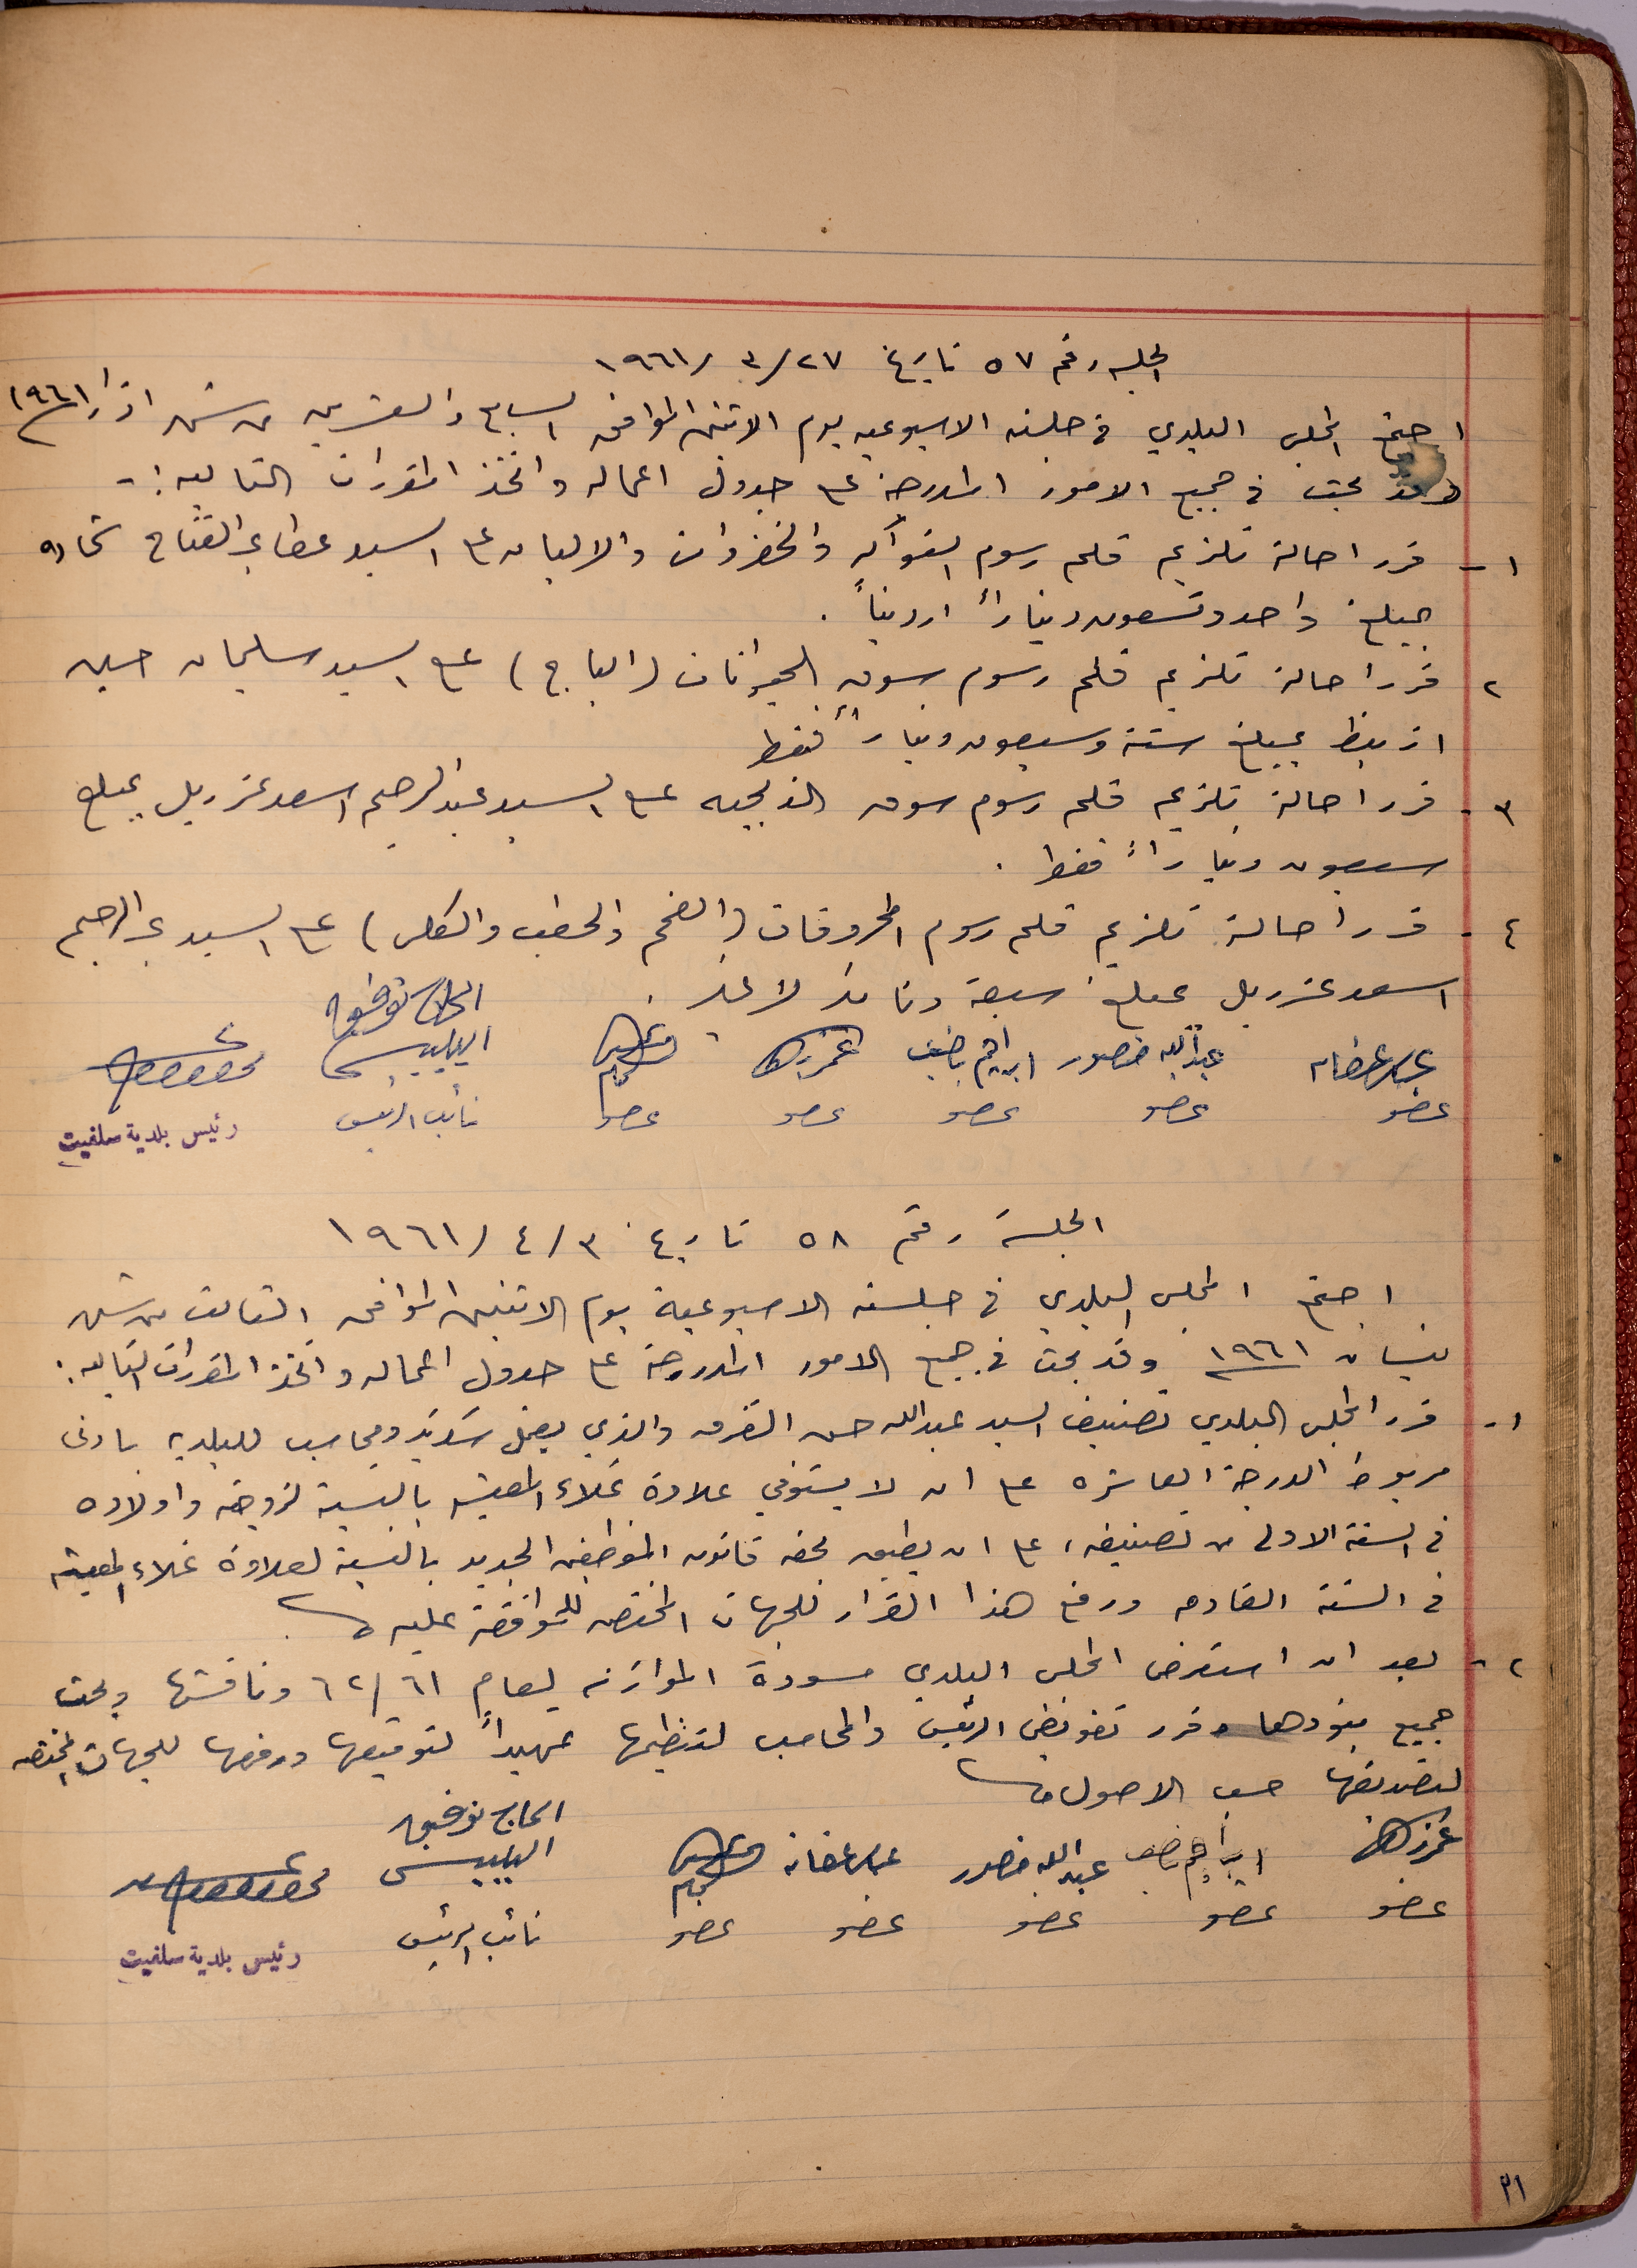 الجلسه رقم ٥٧ تاريخ ٢٧/٣/١٩٦١
اجتمع المجلس البلدي في جلسته الاسبوعيه يوم الاثنين الموافق السابع والعشرين من شهر اذار ١٩٦١
وقد بحث في جميع الامور المدرجة على جدول اعماله واتخذ المقررات التاليه :-
١- قرر احالة تلزيم قلم رسوم الفواكه والخضروات والالبان على السيد عطا عبد الفتاح شحاده
بمبلغ واحد وتسعون ديناراً اردنياً .
٢ قرر احالة تلزيم قلم رسوم سوق الحيوانات (الباج) على السيد سليمان حسين
ازبيط بمبلغ ستة وسبعون ديناراً فقط
٣- قرر احالة تلزيم قلم رسوم سوق الذبحيه على السيد عبد الرحيم اسعد عزريل بمبلغ
سبعون ديناراً فقط .
٤- قرر احالة تلزيم قلم رسوم المحروقات (الفحم والحطب والكلس) على السيد عبد الرحيم
اسعد عزريل بمبلغ سبعة دنانير لا غير .
الحاج توفيق
عبد الله منصور ابراهيم
عضو عضو عضو عضو عضو نائب الرئيس
رئيس بلدية سلفيت
الجلسة رقم ٥٨ تاريخ ٣/٤/١٩٦١
اجتمع المجلس البلدي في جلسته الاسبوعية يوم الاثنين الموافق الثالث من شهر
نيسان ١٩٦١ وقد بحث في جميع الامور المدرجة على جدول اعماله واتخذ المقررات التاليه :
١- قرر المجلس البلدي تصنيف السيد عبدالله حسن القرق والذي يعمل سكرتير ومحاسب للبلديه بادنى
مربوط الدرجة العاشره على ان لا يستوفي علاوة غلاء المعيشه بالنسبة لزوجته واولاده
في السنة الاولى من تصنيفه ، على ان يطبق بحقه قانون الموظفين الجديد بالنسبة لعلاوة غلاء المعيشه
في السنة القادمه ورفع هذا القرار للجهات المختصه للموافقة عليه
٢- بعد ان استعرض المجلس البلدي مسودة الموازنه لعام ٦١/٦٢ وناقشها وبحث
جميع بنودها وقرر تفويض الرئيس والمحاسب لتنظيمها تمهيداً لتوقيعها ورفعها للجهات المختصه
لتصديقها حسب الاصول
الحاج توفيق
ابراهيم عبد الله منصور
عضو عضو عضو عضو عضو نائب الرئيس
رئيس بلدية سلفيت
٣١